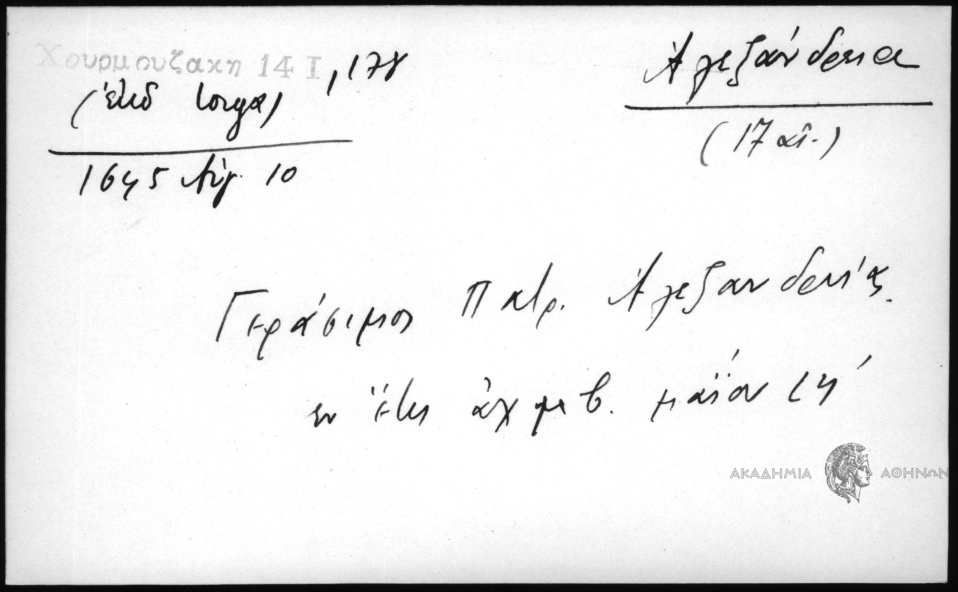 Χουρμουζακη 14 Ι, 178
(ἐκδ Iorga)
1645 Αὐγ. 10
Ἀλεξάνδρεια
(17 αἰ.)
Γεράσιμος Πατρ. Ἀλεξανδρείας.
ἐν ἔτει ἀχμβ. μαΐου
ΑΚΑΔΗΜΙΑ ΑΘΗΝΩΝ